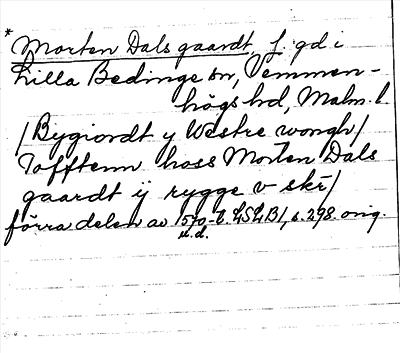 * Morten Dals gaardt, f. gd i
Lilla Bedinge sn, Vemmen-
högs hd, Malm. l
/Bygiordt y Westre wongh/
Tofftenn hoss Morten Dals
gaardt ij rygge v skr/
förra delen av 1570-t. LSLB1, s. 298. orig.
u.d.